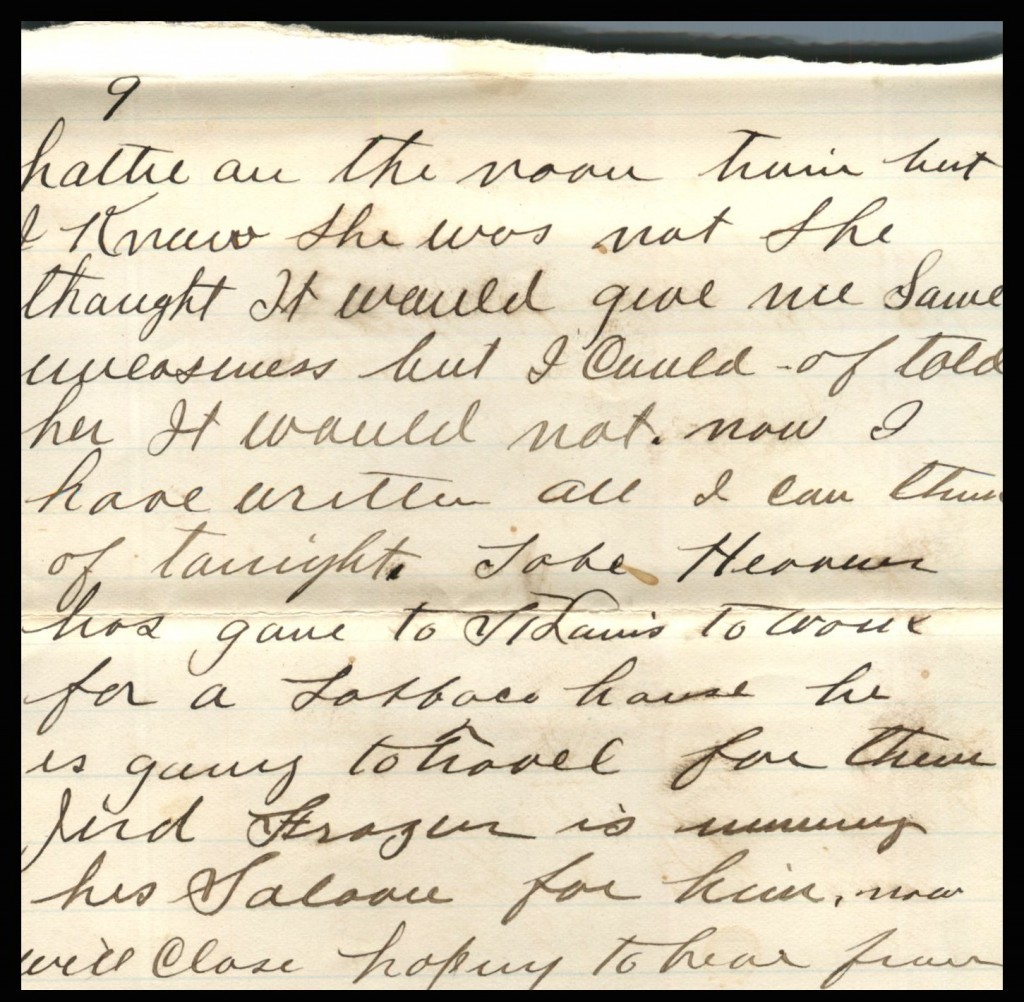 9
hattie on the noon train but
I Know she was not she
thought It would give me Some
uneasiness but I Could - of told
her It would not. now I
have written all I can think
of tonight. Tobe
has gone to St Louis to work
for a Tobbaco house he
is going to travel for them
Jird Frazier is running
his Saloon for him, now
will Close hoping to hear from